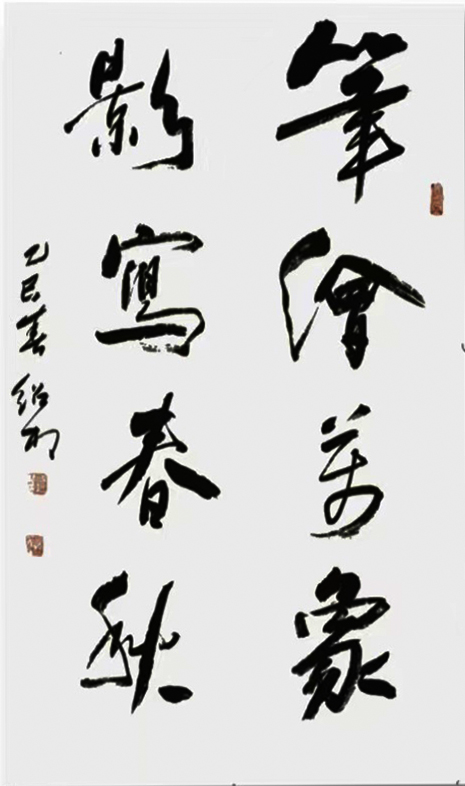 筆繪萬象
影寫春秋
乙巳春 紹